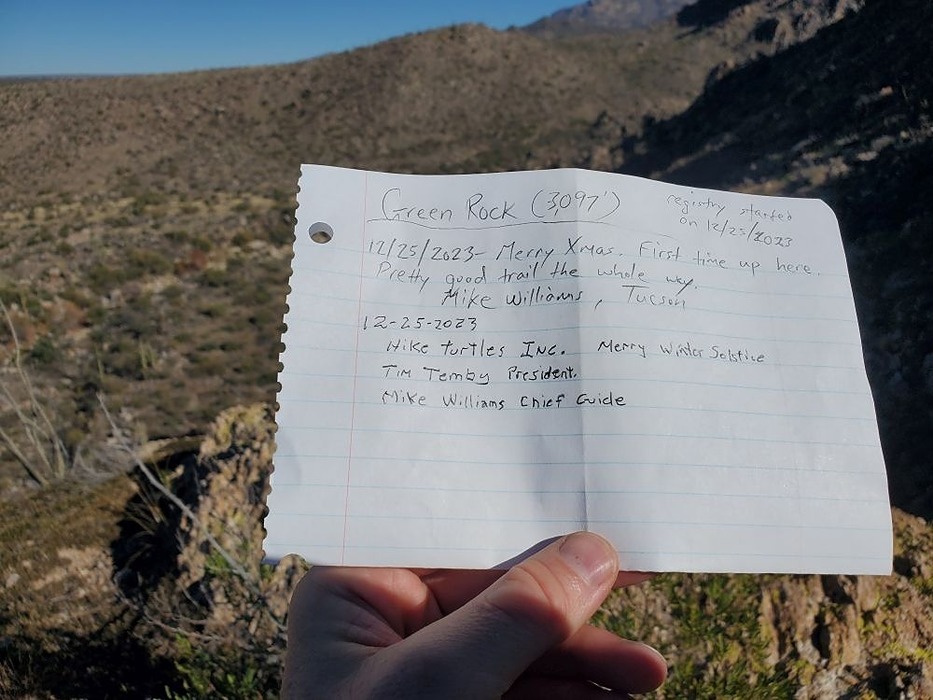 Green Rock (3,097')
registry started
on 12/25/2023
12/25/2023- Merry Xmas. First time up here.
Pretty good trail the whole way.
Mike Williams, Tucson
12-25-2023
Hike Turtles Inc. Merry Winter Solstice
Tim Temby President.
Mike Williams Chief Guide